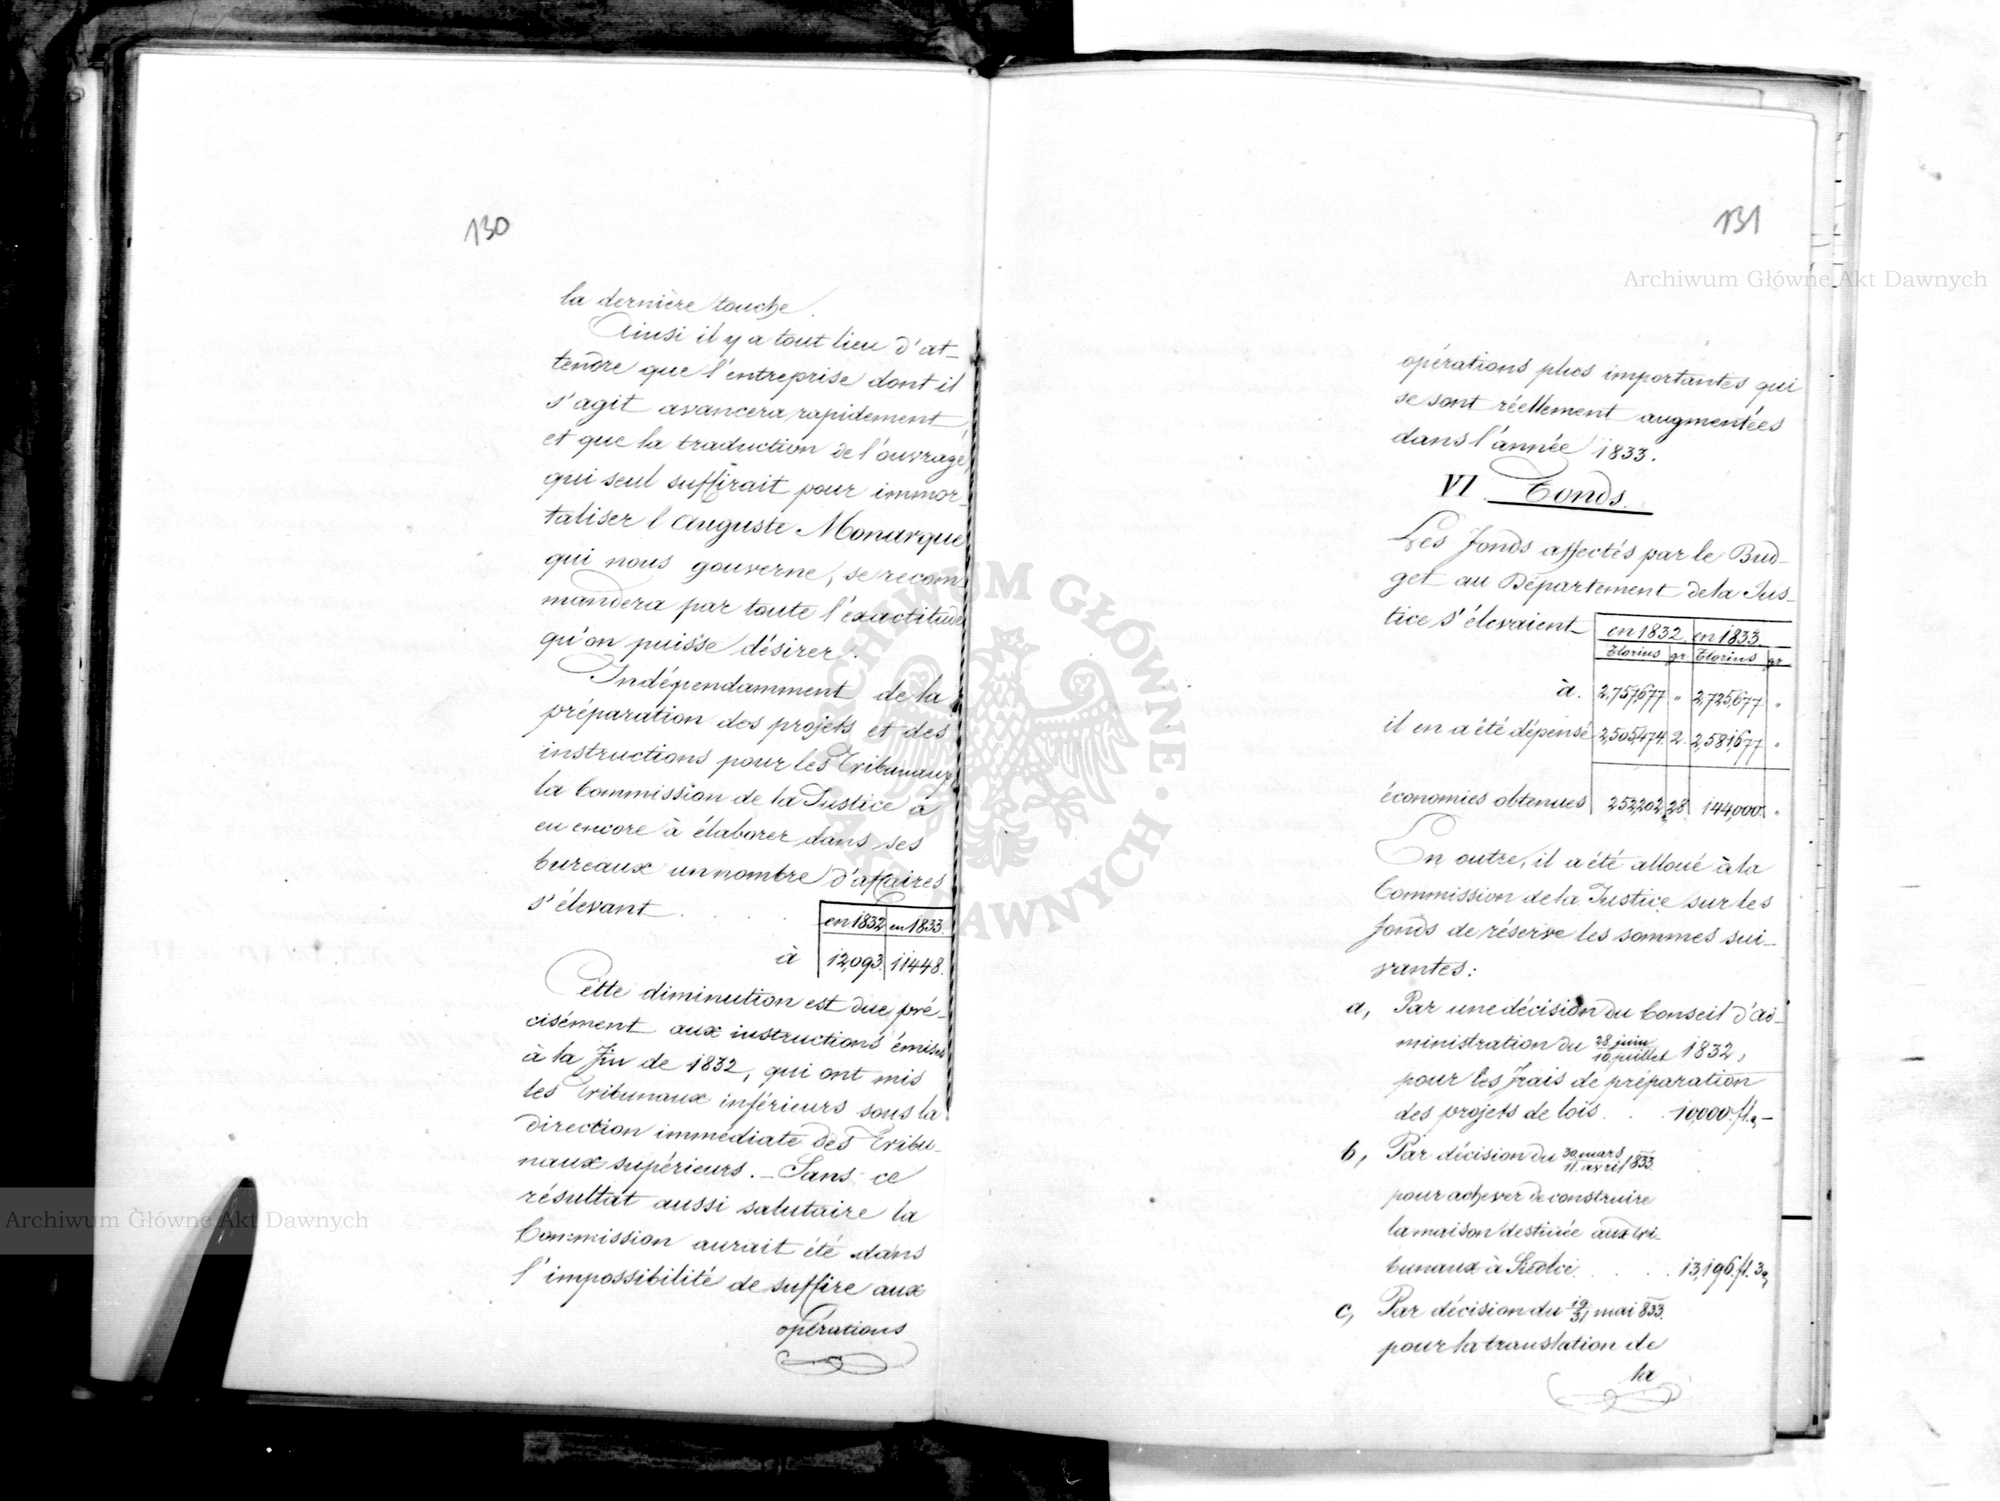 130
la dernière touche.
Ainsi il y a tout lieu d'at-
tendre que l'entreprise dont il
s'agit avancera rapidement,
et que la traduction de l'ouvrage,
qui seul suffirait pour immor-
taliser l'Auguste Monarque
qui nous gouverne, se recom
mandera par toute l'éxactitude
qu'on puisse désirer.
Indépendamment de la
préparation des projets et des
instructions pour les Tribunaux,
la Commission de la Justice a
eu encore à élaborer dans ses
bureaux un nombre d'affaires
s'élevant . . . .
en 1832 en 1833.
à 12,093. 11448.
Cette diminution est due pré-
cisément aux instructions émises
à la fin de 1832, qui ont mis
les Tribunaux inférieurs sous la
direction immédiate des Tribu-
naux supérieurs. – Sans ce
résultat aussi salutaire la
Commission aurait été dans
l'impossibilité de suffire aux
opérations
131
opérations plus importantes qui
se sont réellement augmentées
dans l'année 1833.
VI. Fonds.
Les fonds affectés par le Bud-
get au Département de la Jus-
tice s'élevaient
en 1832. en 1833.
Florins gr. Florins gr
à. 2,757,677 " 2,725,677 "
il en a été dépensé 2,505,474. 2. 2,581,677 "
économies obtenues 252,202 28 144,000. "
En outre, il a été alloué à la
Commission de la Justice sur les
fonds de réserve les sommes sui-
vantes:
a, Par une décision du Conseil d'ad-
ministration du 28 juin/10 juillet 1832,
pour les frais de préparation
des projets de lois . . . 10,000 fl. „ –
b, Par décision du 30 mars/11 avril 1833.
pour achever de construire
la maison destinée aux tri-
bunaux à Siedlce . . . . 13,196 fl. 3 „
c, Par décision du 19/31 mai 833.
pour la translation de
la
Archiwum Główne Akt Dawnych
Archiwum Główne Akt Dawnych
ARCHIWUM GŁÓWNE AKT DAWNYCH